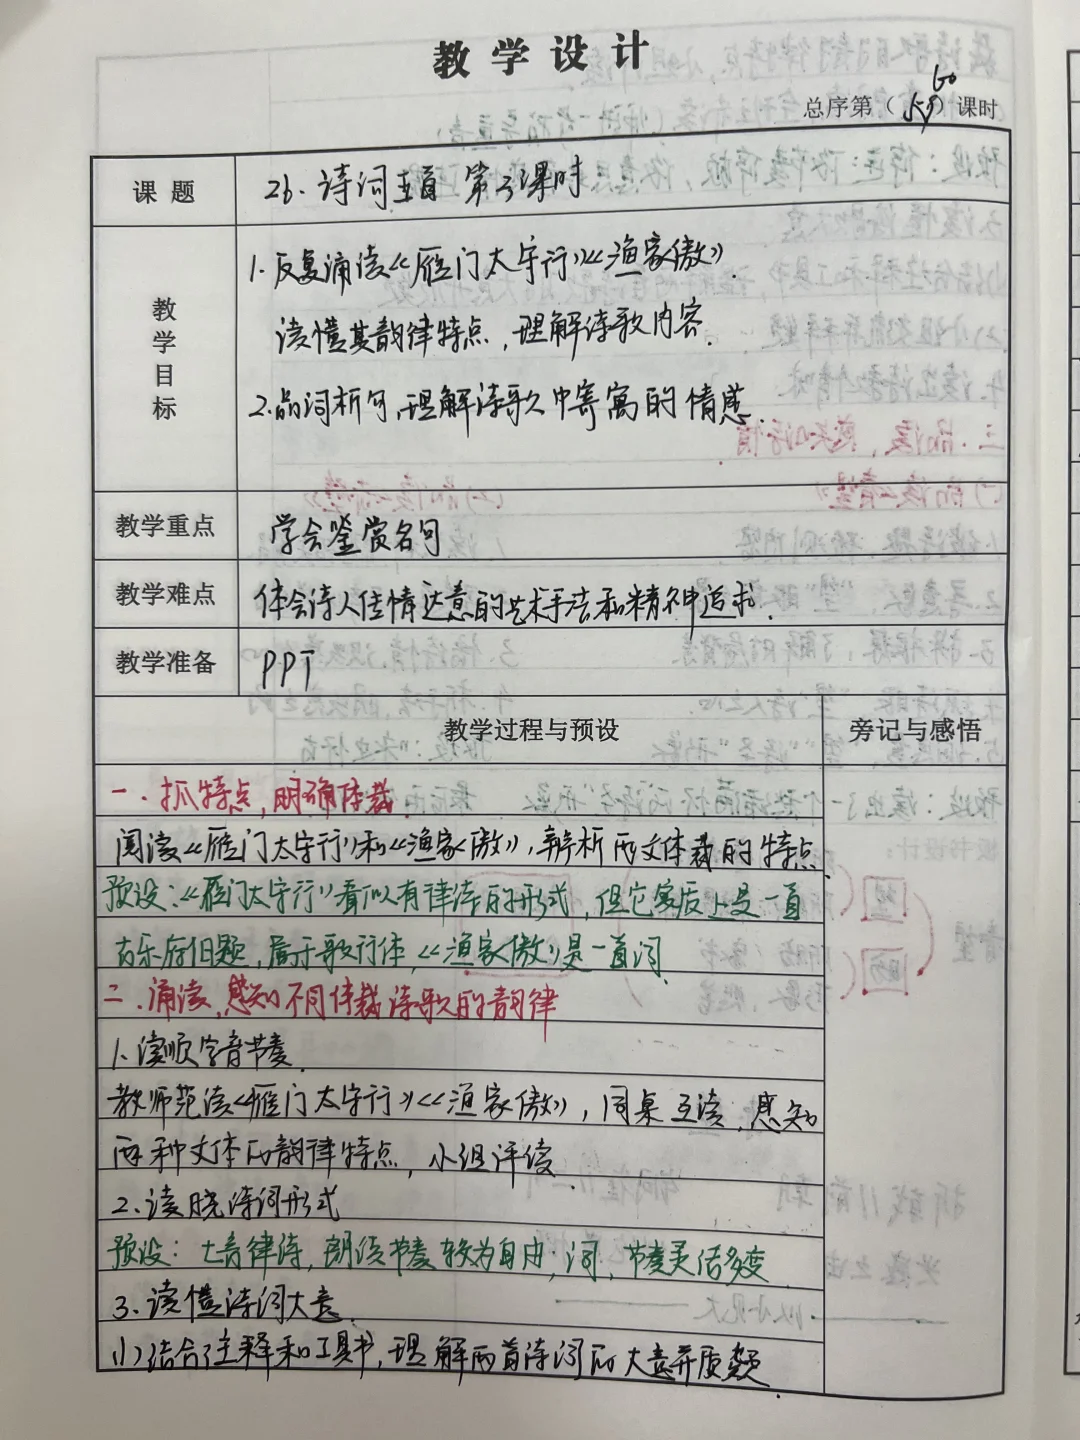 教学设计
总序第（60）课时
课题 26.诗词五首 第3课时
教学目标
1.反复诵读《雁门太守行》《渔家傲》.
读懂其韵律特点,理解诗歌内容.
2.品词析句,理解诗歌中寄寓的情感.
教学重点 学会鉴赏名句
教学难点 体会诗人住情达意的艺术手法和精神追求.
教学准备 PPT
教学过程与预设 旁记与感悟
一.抓特点,明确体裁
阅读《雁门太守行》和《渔家傲》,辨析两文体裁的特点.
预设:《雁门太守行》看似有律诗的形式,但它实质上是一首
古乐府旧题,属于歌行体,《渔家傲》是一首词.
二.诵读,感知不同体裁诗歌的韵律
1.读顺字音节奏.
教师范读《雁门太守行》《渔家傲》,同桌互读,感知
两种文体的韵律特点,小组评读.
2.读晓诗词形式
预设:七言律诗,朗读节奏较为自由;词,节奏灵活多变.
3.读懂诗词大意.
(1)结合注释和工具书,理解两首诗词的大意并质疑.